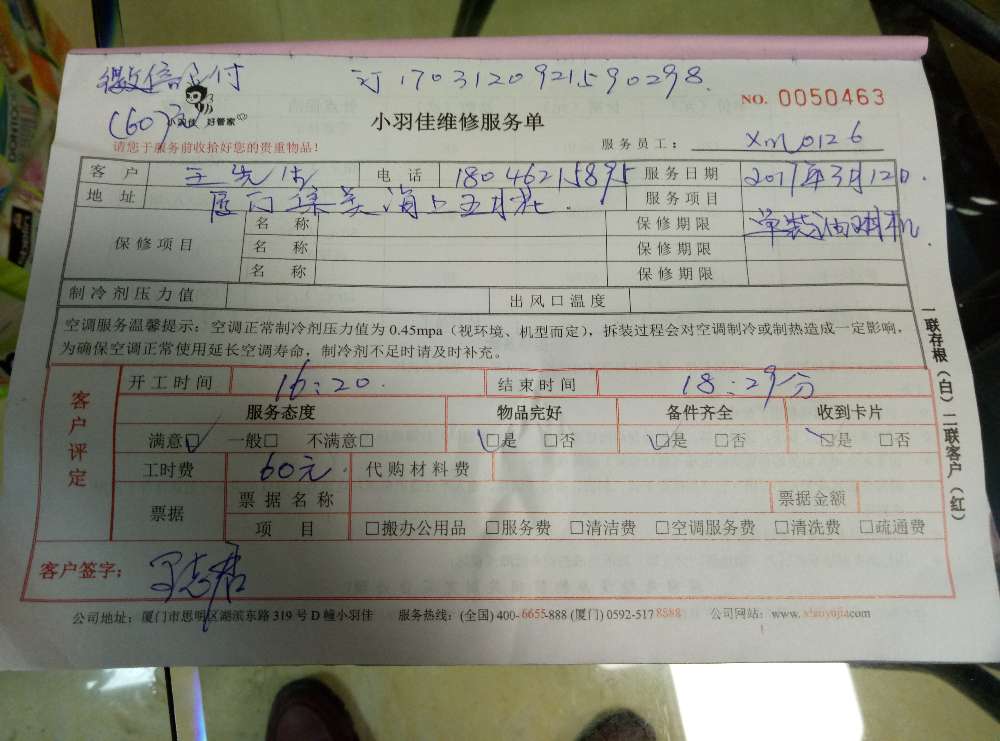 微信支付 订1703120921590298
(60元)
小羽佳 好管家
NO. 0050463
小羽佳维修服务单
请您于服务前收拾好您的贵重物品! 服务员工: xm0126
客户 王先生 电话 18046215895 服务日期 2017年3月12日.
地址 厦门集美海上五月花. 服务项目
保修项目 名称 保修期限 单装油烟机.
名称 保修期限
名称 保修期限
制冷剂压力值 出风口温度
空调服务温馨提示:空调正常制冷剂压力值为0.45mpa(视环境、机型而定),拆装过程会对空调制冷或制热造成一定影响,
为确保空调正常使用延长空调寿命,制冷剂不足时请及时补充。
客户评定
开工时间 16:20. 结束时间 18:29分
服务态度 物品完好 备件齐全 收到卡片
满意☑ 一般□ 不满意□ ☑是 □否 ☑是 □否 ☑是 □否
工时费 60元. 代购材料费
票据 票据名称 票据金额
项目 □搬办公用品 □服务费 □清洁费 □空调服务费 □清洗费 □疏通费
客户签字:
公司地址:厦门市思明区湖滨东路319号D幢小羽佳 服务热线:(全国)400-6655-888 (厦门)0592-5178588 公司网站:www.xiaoyujia.com
一联存根(白)二联客户(红)